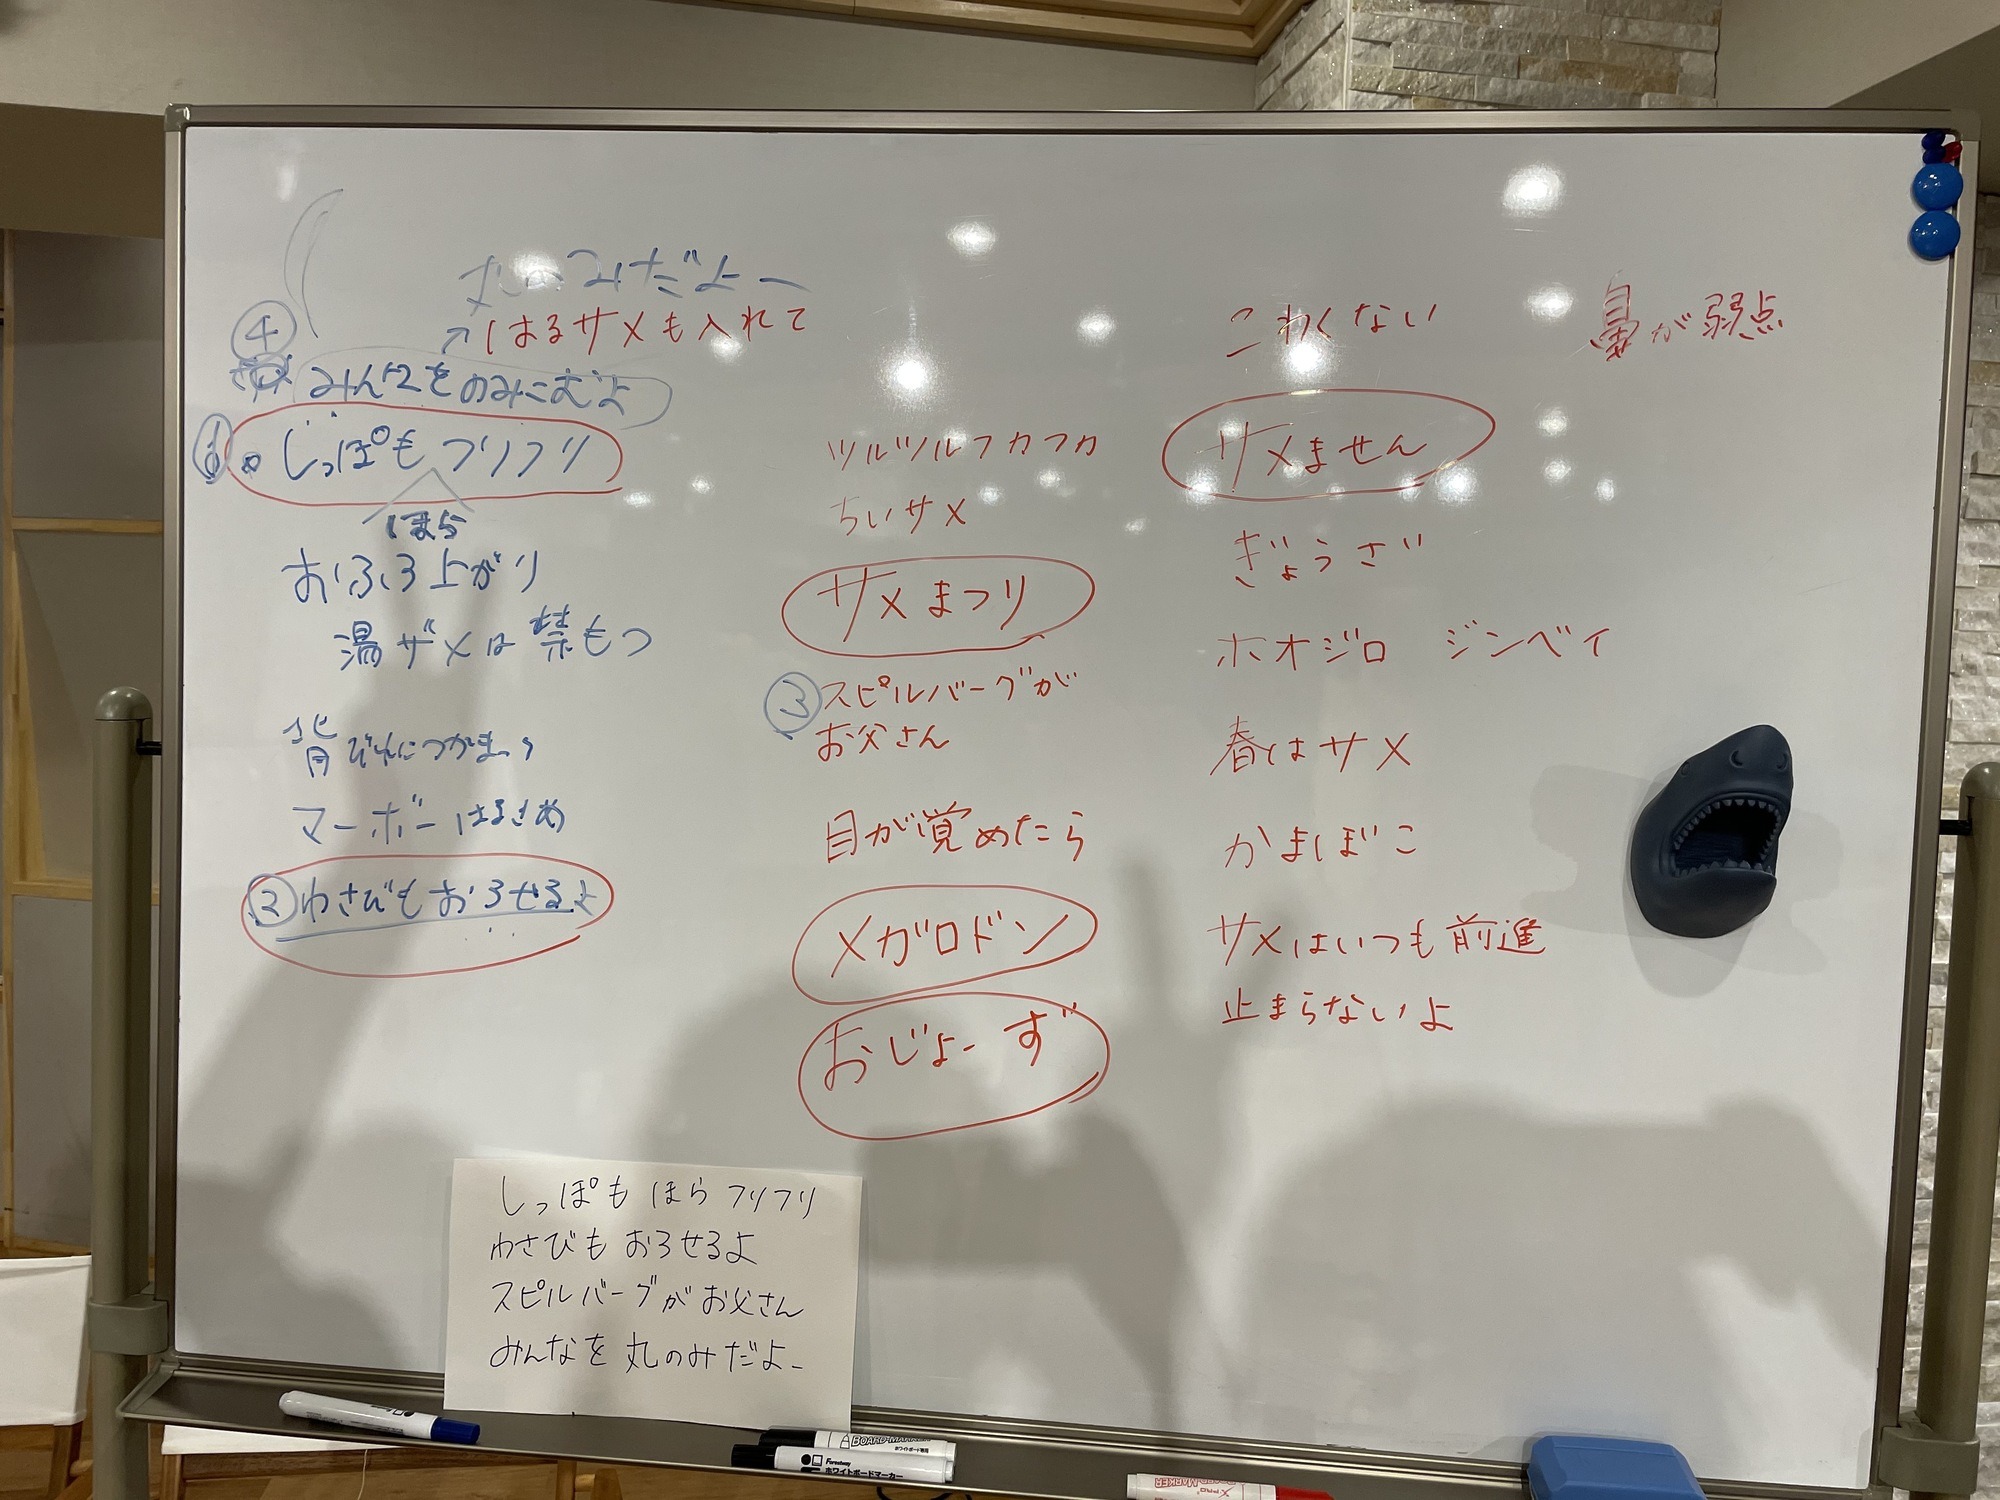 丸のみだよー
はるサメも入れて
④
みんなをのみこむよ
① しっぽもフリフリ
ほら
おふろ上がり
湯ザメは禁もつ
背びれにつかまって
マーボーはるさめ
② わさびもおろせるよ
ツルツルフカフカ
ちいサメ
サメまつり
③ スピルバーグが
お父さん
目が覚めたら
メガロドン
おじょーず
こわくない
鼻が弱点
サメません
ぎょうざ
ホオジロ ジンベイ
春はサメ
かまぼこ
サメはいつも前進
止まらないよ
しっぽも ほら フリフリ
わさびも おろせるよ
スピルバーグが お父さん
みんなを 丸のみだよー
BOARD MARKER
ホワイトボード専用
Forestway
ホワイトボードマーカー